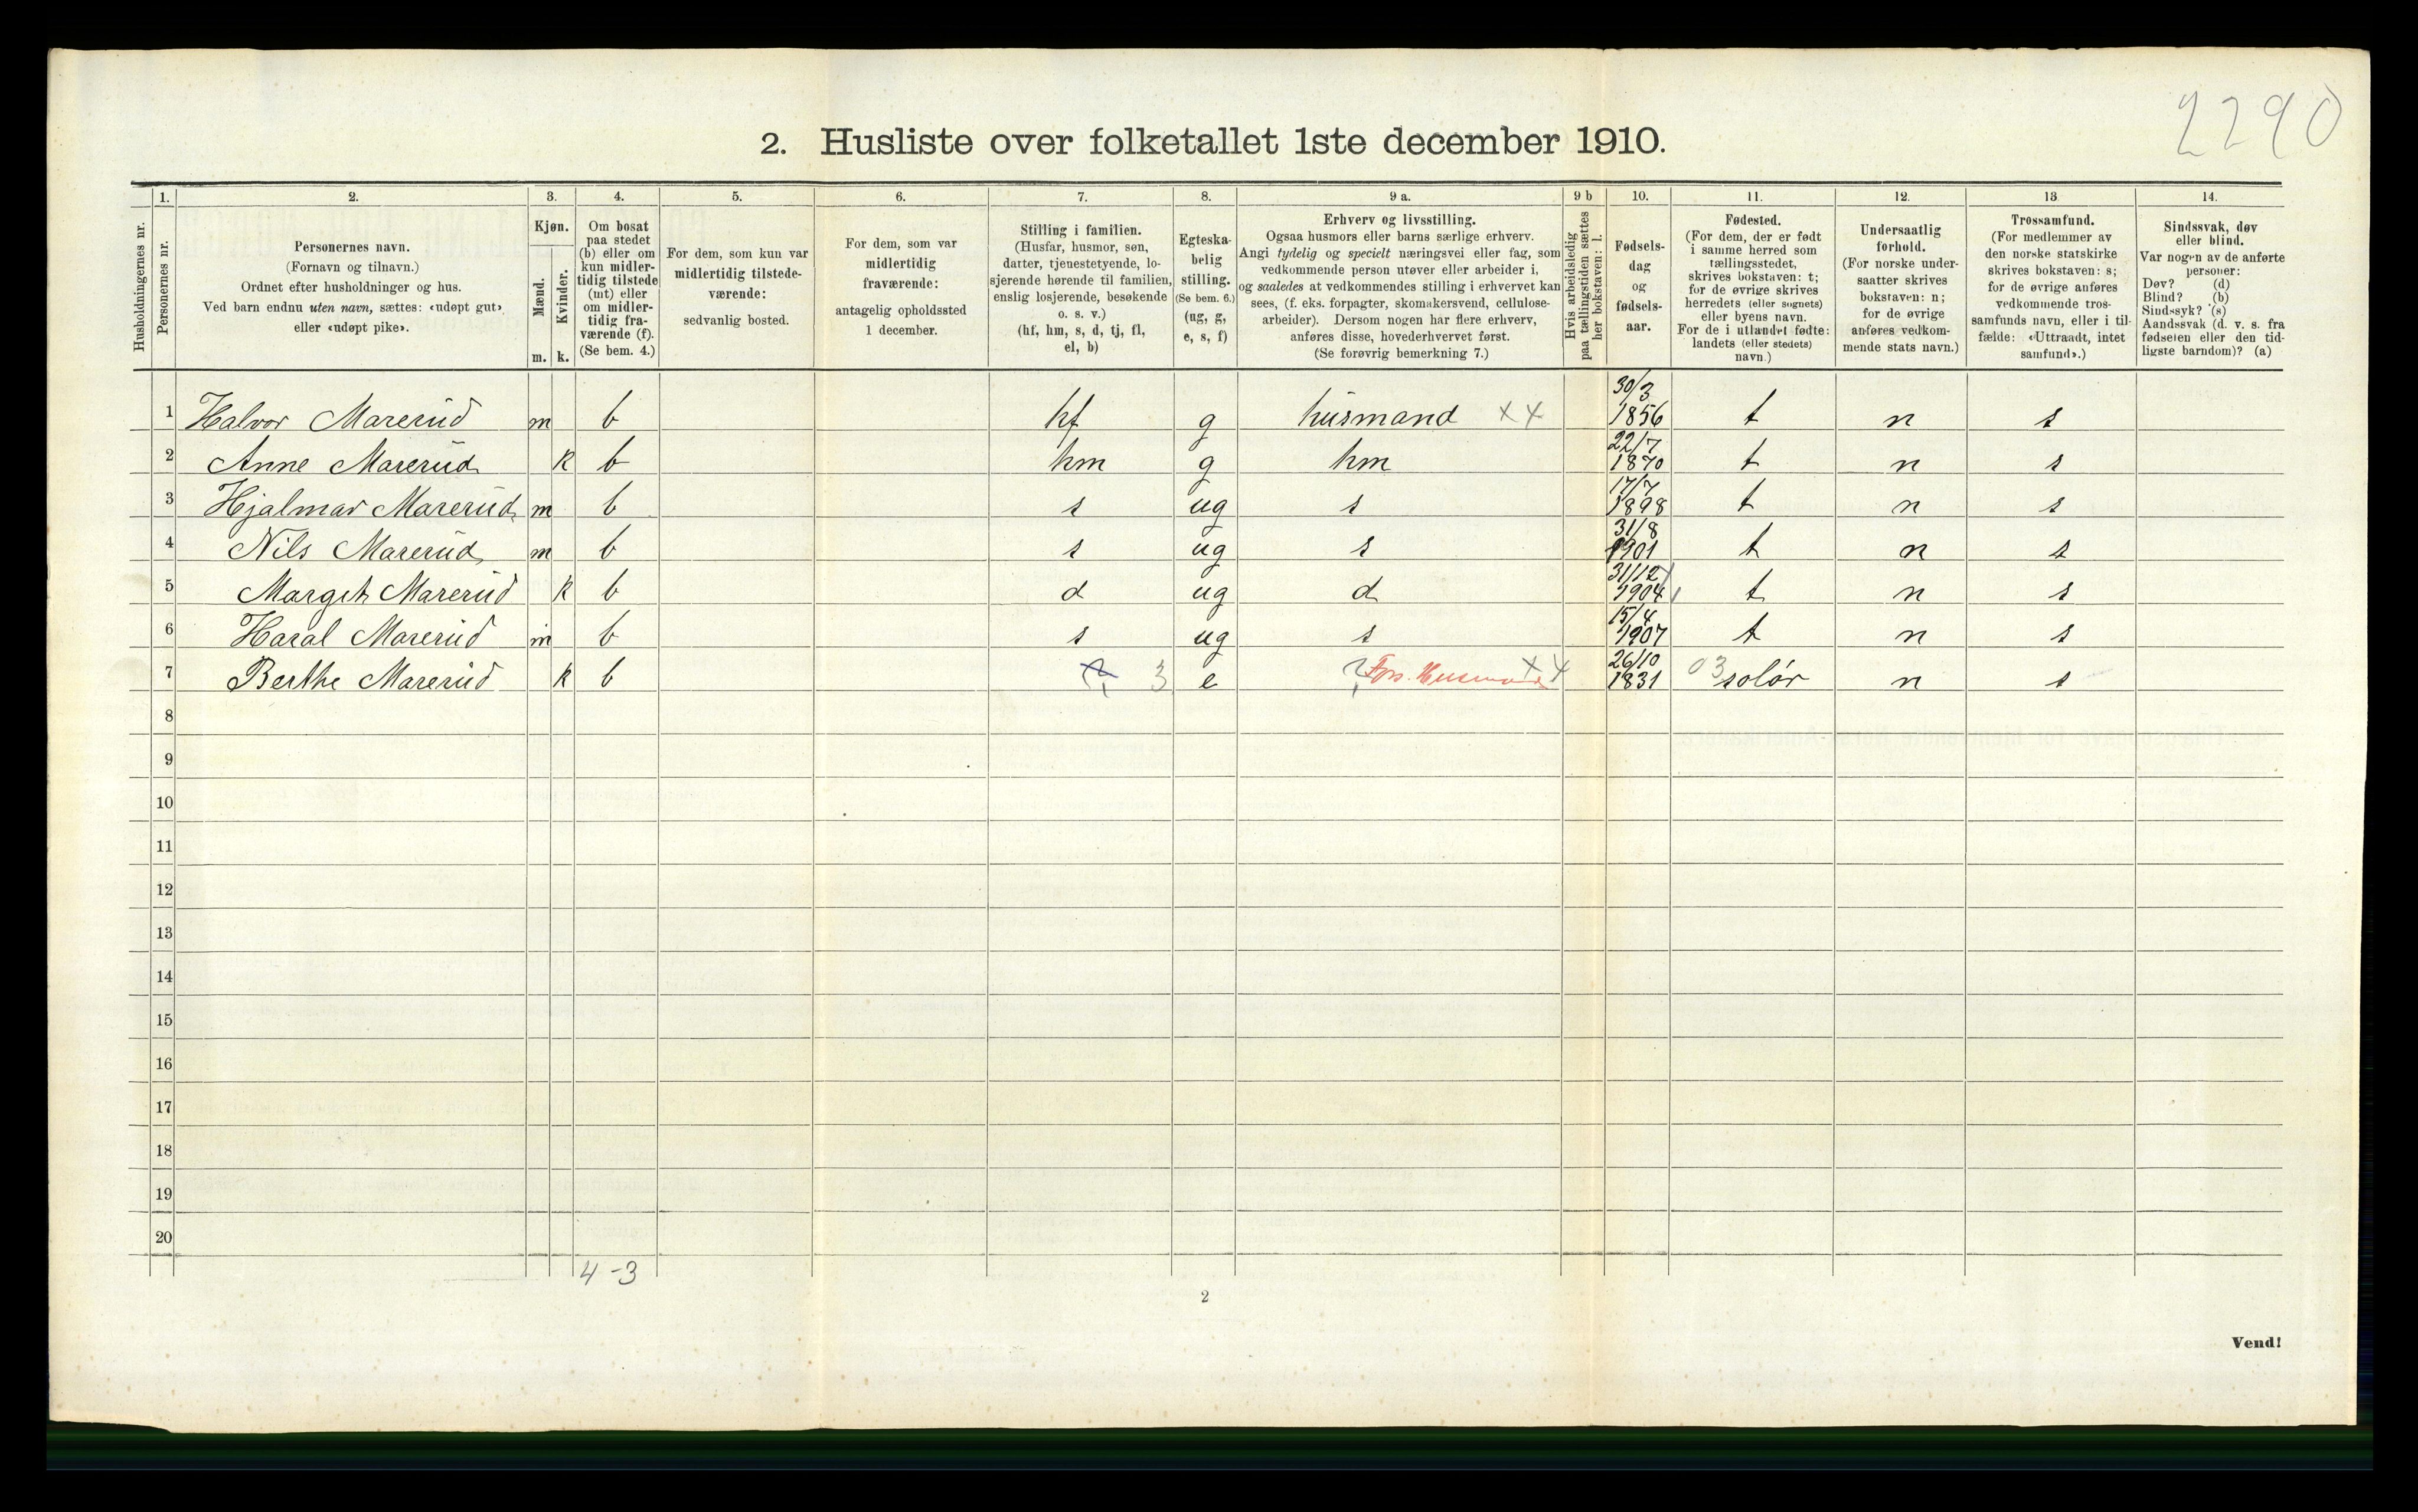 2290
2. Husliste over folketallet 1ste december 1910.
1. 2. 3. 4. 5. 6. 7. 8. 9 a. 9 b 10. 11. 12. 13 14.
Husholdningernes nr.
Personernes nr.
Personernes navn.
(Fornavn og tilnavn.)
Ordnet efter husholdninger og hus.
Ved barn endnu uten navn, sættes: «udøpt gut»
eller «udøpt pike».
Kjøn.
Mænd.
Kvinder.
m. k.
Om bosat
paa stedet
(b) eller om
kun midler-
tidig tilstede
(mt) eller
om midler-
tidig fra-
værende (f).
(Se bem. 4.)
For dem, som kun var
midlertidig tilstede-
værende:
sedvanlig bosted.
For dem, som var
midlertidig
fraværende:
antagelig opholdssted
1 december.
Stilling i familien.
(Husfar, husmor, søn,
datter, tjenestetyende, lo-
sjerende hørende til familien,
enslig losjerende, besøkende
o. s. v.)
(hf, hm, s, d, tj, fl,
el, b)
Egteska-
belig
stilling.
(Se bem. 6.)
(ug, g,
e, s, f)
Erhverv og livsstilling.
Ogsaa husmors eller barns særlige erhverv.
Angi tydelig og specielt næringsvei eller fag, som
vedkommende person utøver eller arbeider i,
og saaledes at vedkommendes stilling i erhvervet kan
sees, (f. eks. forpagter, skomakersvend, cellulose-
arbeider). Dersom nogen har flere erhverv,
anføres disse, hovederhvervet først.
(Se forøvrig bemerkning 7.)
Hvis arbeidsledig
paa tællingstiden sættes
her bokstaven: l.
Fødsels-
dag
og
fødsels-
aar.
Fødested.
(For dem, der er født
i samme herred som
tællingsstedet,
skrives bokstaven: t;
for de øvrige skrives
herredets (eller sognets)
eller byens navn.
For de i utlandet fødte:
landets (eller stedets)
navn.)
Undersaatlig
forhold.
(For norske under-
saatter skrives
bokstaven: n;
for de øvrige
anføres vedkom-
mende stats navn.)
Trossamfund.
(For medlemmer av
den norske statskirke
skrives bokstaven: s;
for de øvrige anføres
vedkommende tros-
samfunds navn, eller i til-
fælde: «Uttraadt, intet
samfund».)
Sindssvak, døv
eller blind.
Var nogen av de anførte
personer:
Døv? (d)
Blind? (b)
Sindssyk? (s)
Aandssvak (d. v. s. fra
fødselen eller den tid-
ligste barndom)? (a)
1 Halvor Marerud m b hf g husmand x 4 30/3 1856 t n s
2 Anne Marerud k b hm g hm 22/7 1870 t n s
3 Hjalmar Marerud m b s ug s 17/7 1898 t n s
4 Nils Marerud m b s ug s 31/8 1901 t n s
5 Margit Marerud k b d ug d 31/12 1904 t n s
6 Haral Marerud m b s ug s 15/4 1907 t n s
7 Berthe Marerud k b 3 e ? x 4 26/10 1831 03 solør n s
8
9
10
11
12
13
14
15
16
17
18
19
20
4-3
2
Vend!